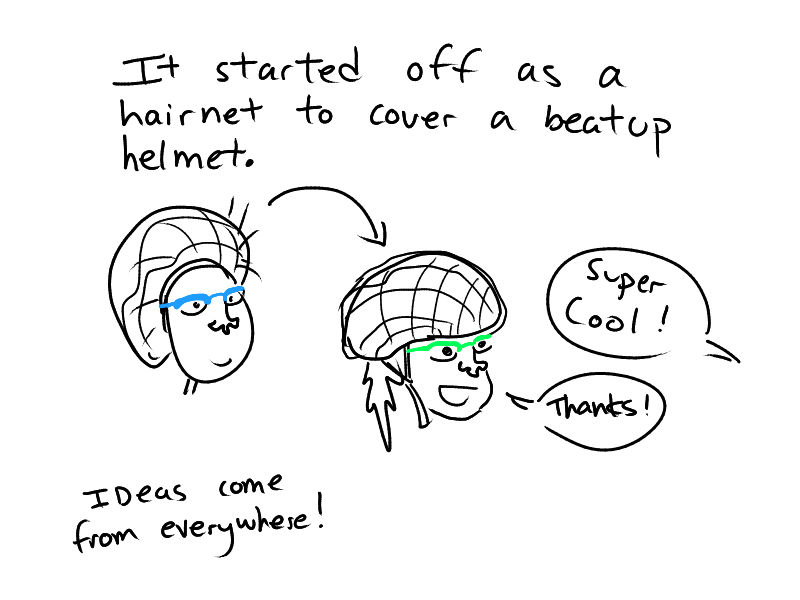 It started off as a
hairnet to cover a beatup
helmet.
Super
Cool!
Thanks!
IDeas come
from everywhere!